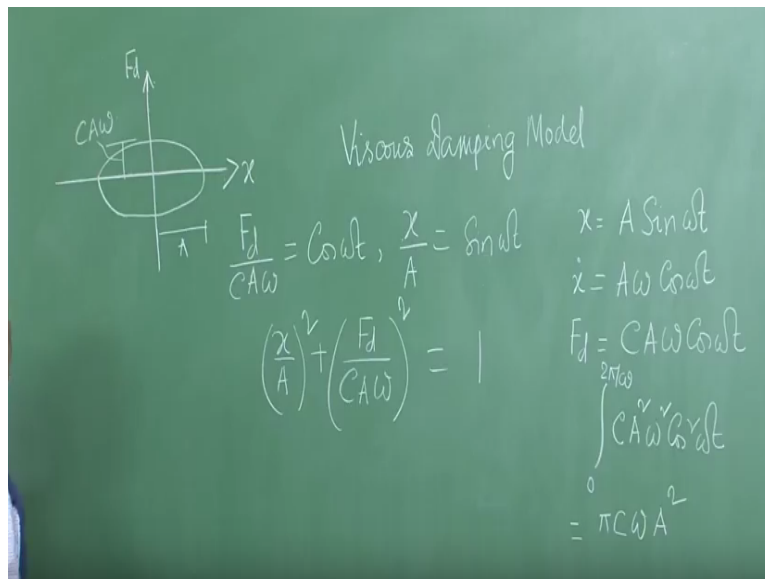 Fd
CAω
x
A
Viscous Damping Model
Fd/CAω = Cosωt, x/A = Sinωt
(x/A)² + (Fd/CAω)² = 1
x = A Sinωt
ẋ = Aω Cosωt
Fd = CAω Cosωt
∫₀^2π/ω CA²ω² Cos²ωt
= πCωA²